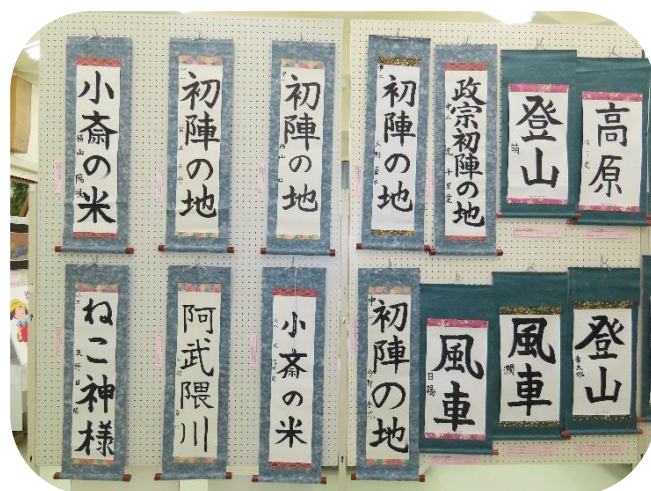 小斎の米
初陣の地
初陣の地
初陣の地
政宗初陣の地
登山
高原
ねこ神様
阿武隈川
小斎の米
初陣の地
風車
風車
登山